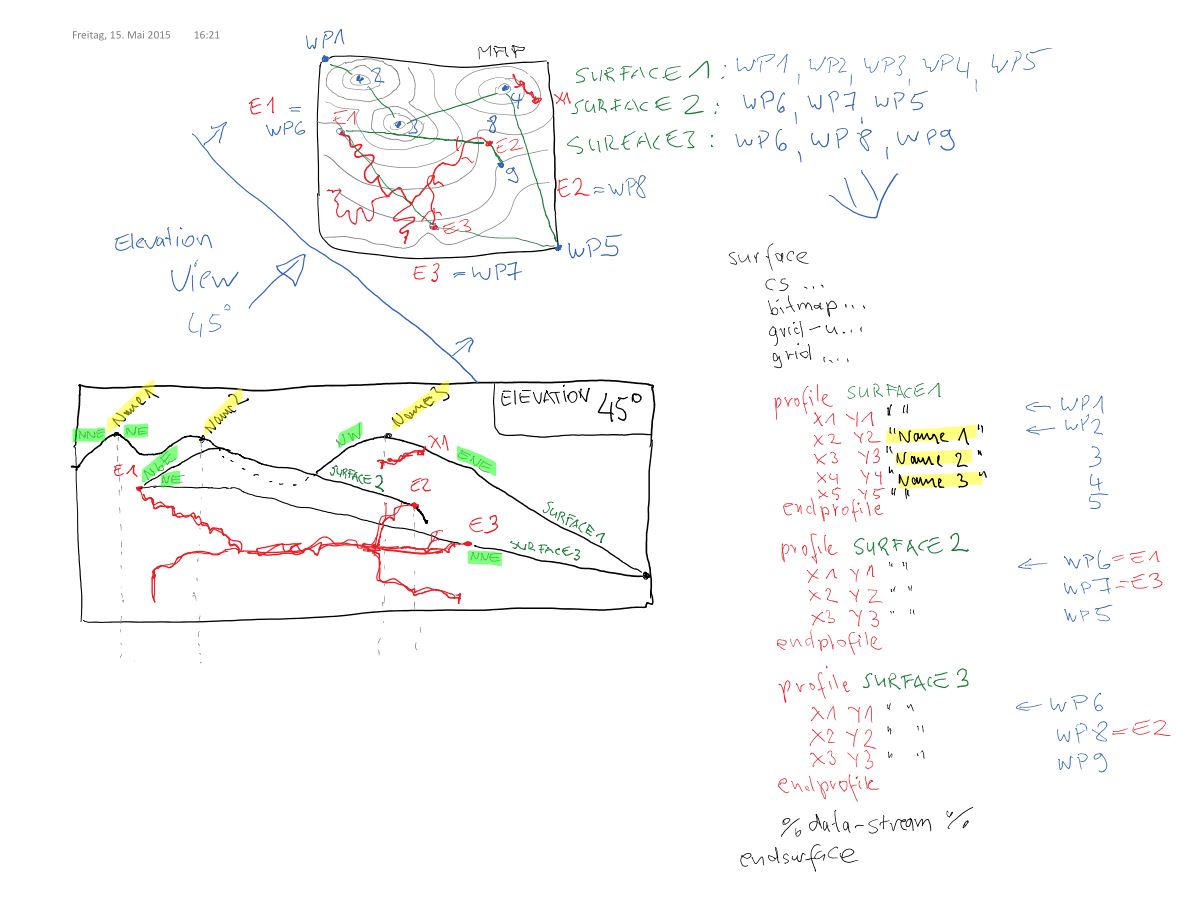 Freitag, 15. Mai 2015 16:21
WP1
MAP
SURFACE 1 : WP1, WP2, WP3, WP4, WP5
SURFACE 2 : WP6, WP7, WP5
SURFACE 3 : WP6, WP8, WP9
E1 =
WP6
2
3
4
X1
E1
8
E2
9
E3
E2 = WP8
WP5
E3 = WP7
Elevation
View
45°
ELEVATION 45°
Name 1
Name 2
Name 3
NNE
NE
NW
X1
ENE
E1
NbE
NE
SURFACE 2
E2
SURFACE 1
E3
SURFACE 3
NNE
surface
cs ...
bitmap ...
grid-u...
grid ...
profile SURFACE 1
X1 Y1 " " ← WP1
X2 Y2 "Name 1" ← WP2
X3 Y3 "Name 2" 3
X4 Y4 "Name 3" 4
X5 Y5 " " 5
endprofile
profile SURFACE 2
X1 Y1 " " ← WP6 = E1
X2 Y2 " " WP7 = E3
X3 Y3 " " WP5
endprofile
profile SURFACE 3
X1 Y1 " " ← WP6
X2 Y2 " " WP8 = E2
X3 Y3 " " WP9
endprofile
% data-stream %
endsurface